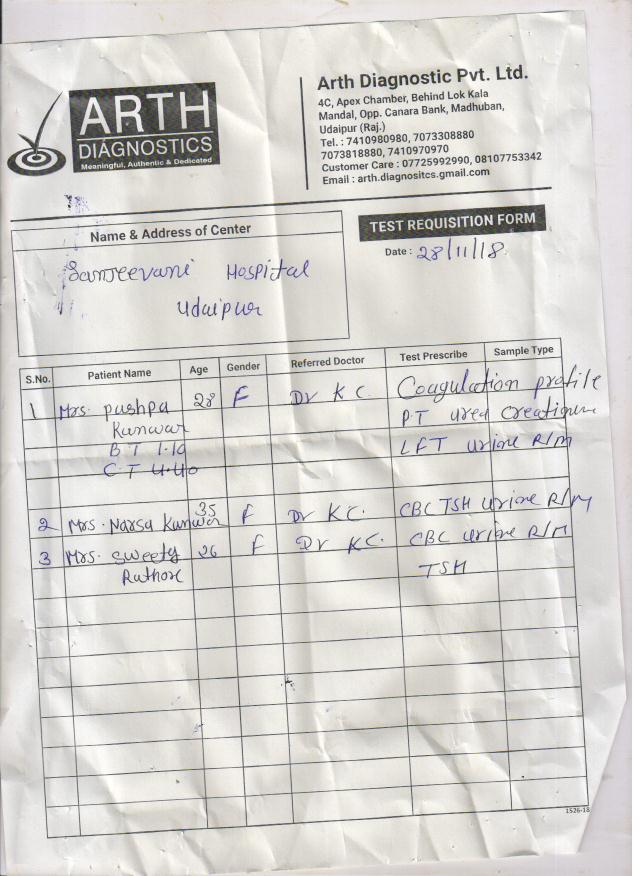 ARTH
DIAGNOSTICS
Meaningful, Authentic & Dedicated
Arth Diagnostic Pvt. Ltd.
4C, Apex Chamber, Behind Lok Kala
Mandal, Opp. Canara Bank, Madhuban,
Udaipur (Raj.)
Tel. : 7410980980, 7073308880
7073818880, 7410970970
Customer Care : 07725992990, 08107753342
Email : arth.diagnositcs.gmail.com
Name & Address of Center
Sanjeevani Hospital
Udaipur
TEST REQUISITION FORM
Date : 28/11/18
S.No. Patient Name Age Gender Referred Doctor Test Prescribe Sample Type
1 Mrs. pushpa 28 F Dr K C. Coagulation profile
Kanwar PT urea Creatinine
BT 1.10 LFT urine R/M
CT 4.40
2 Mrs. Narsa Kanwar 35 F Dr KC. CBC TSH urine R/M
3 Mrs. sweety 26 F Dr KC. CBC urine R/M
Rathore TSH
1526-18